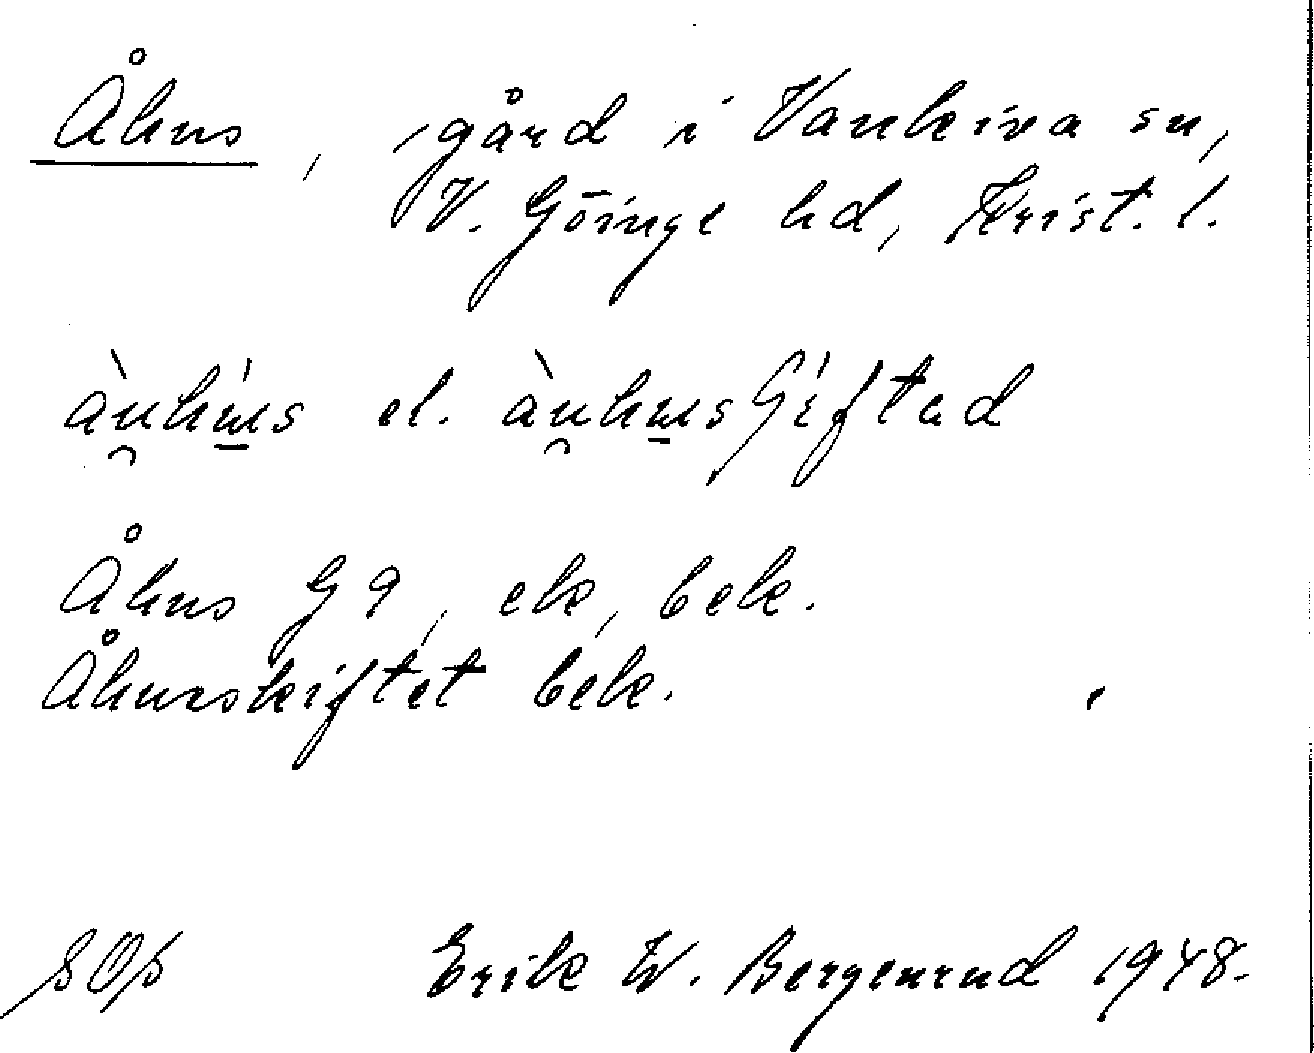 Åhus, gård i Vankiva sn,
V. Göinge hd, Krist. l.
el.
Åhus G 9, ek, bek.
Åhusskiftet bek.
SOp Erik W. Bergenrud 1948.